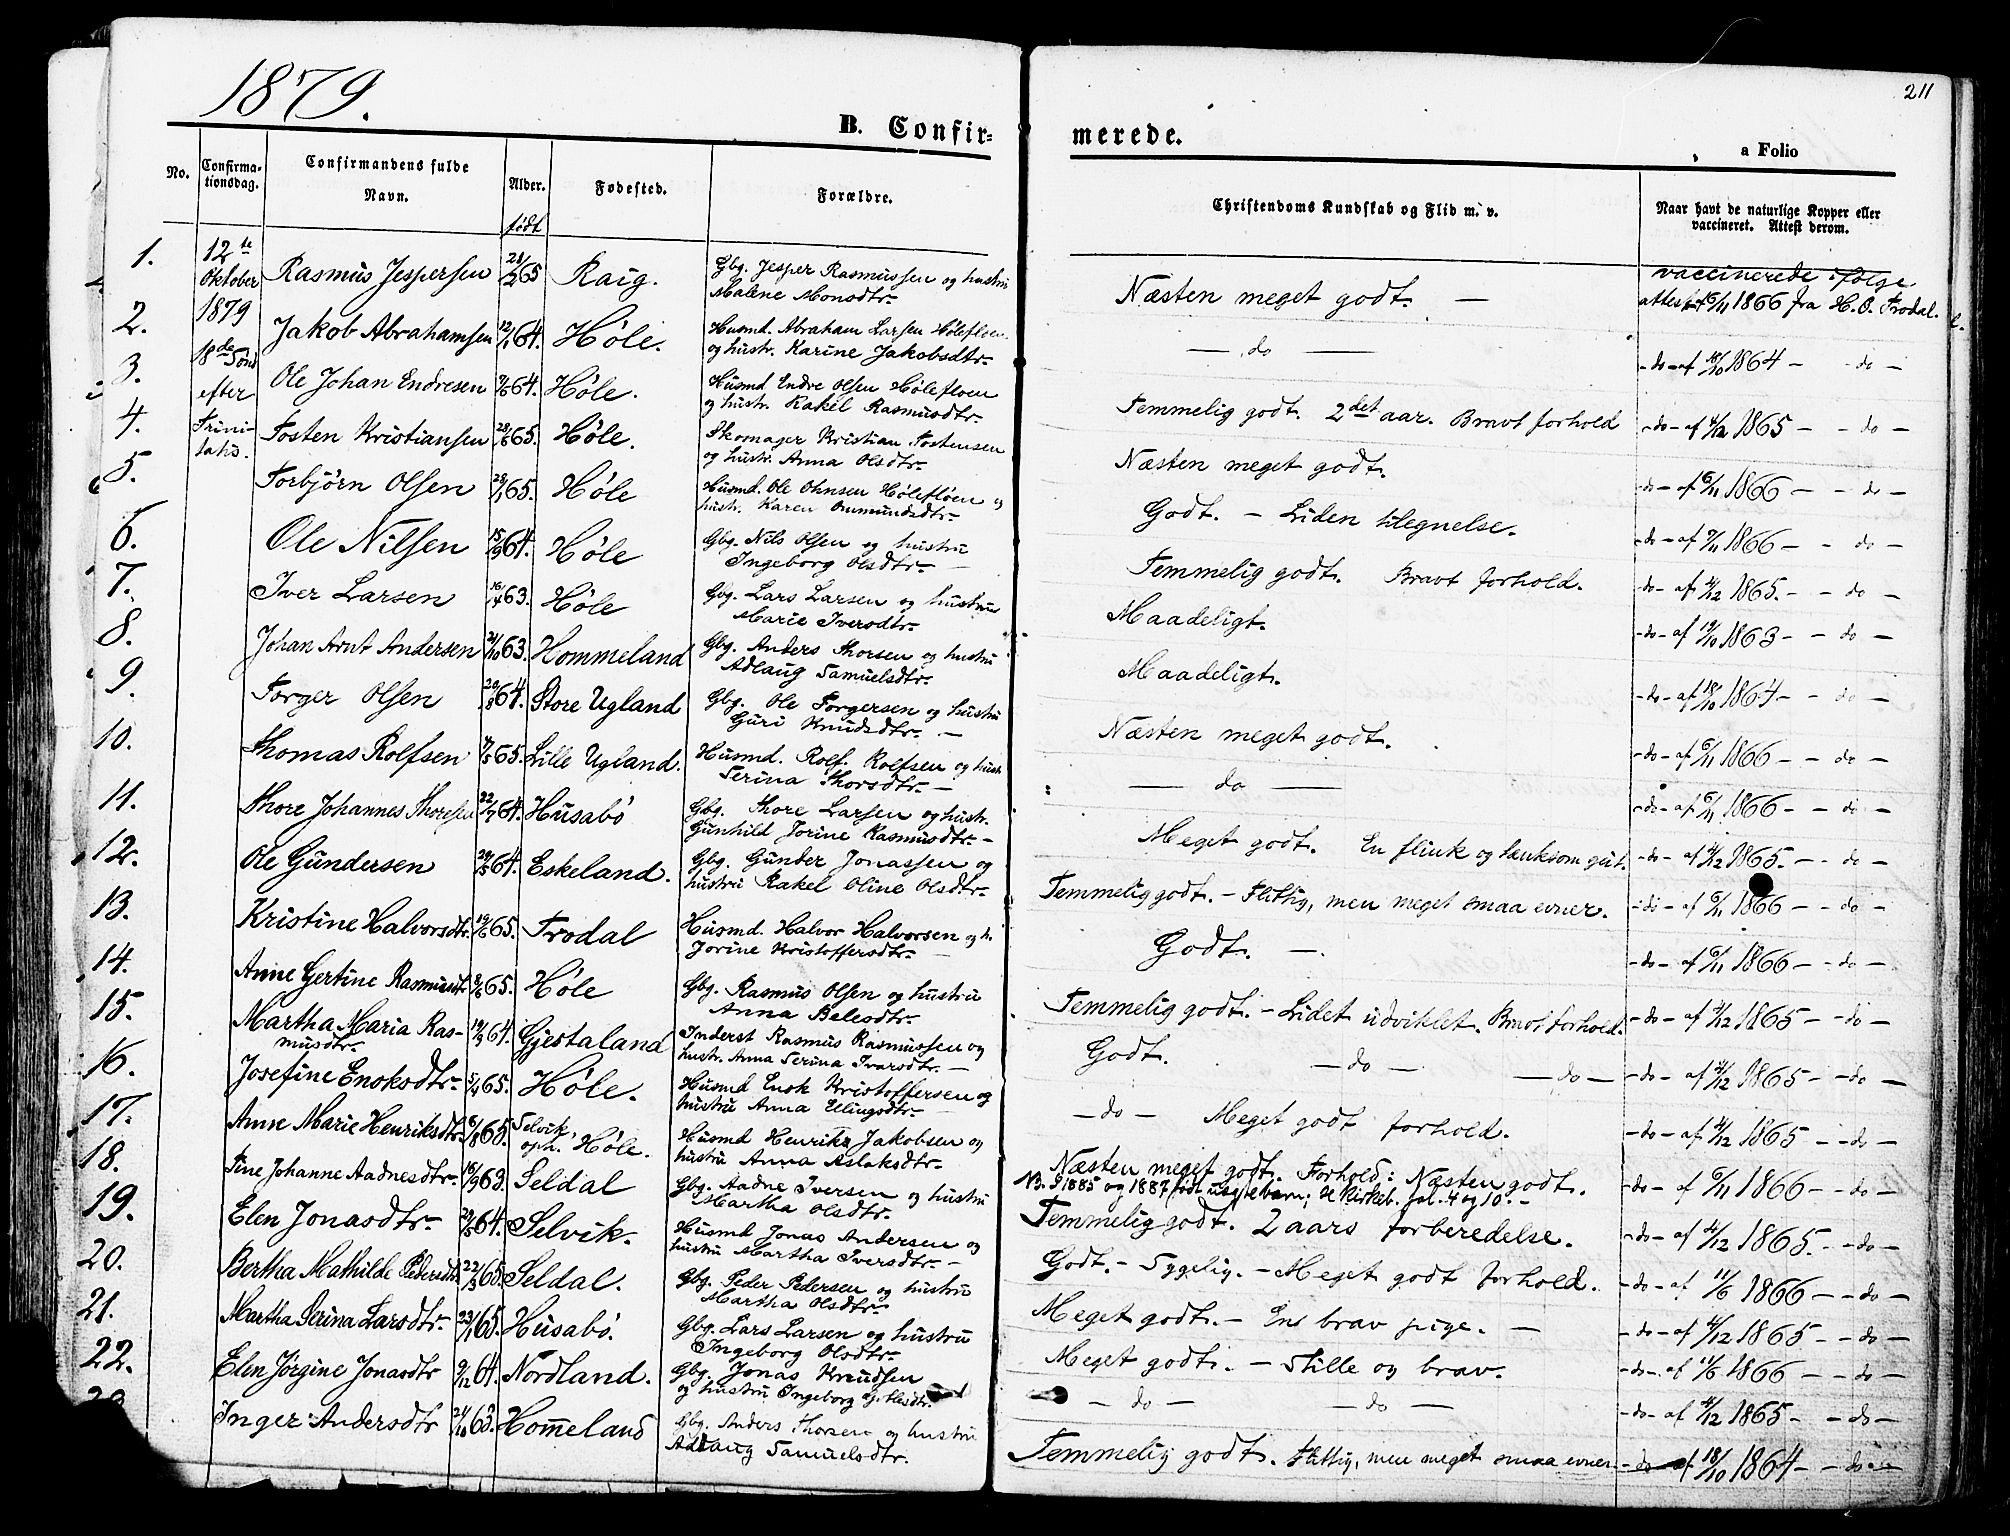 1879.
211
B. Confir-
merede.
a Folio
No.
Confirma-
tionsdag.
Confirmandens fulde
Navn.
Alder.
født
Fødested.
Forældre.
Christendoms Kundskab og Flid m. v.
Naar havt de naturlige Kopper eller
vaccineret. Attest derom.
12te
Oktober
1879
18de Sønd
efter
Trini-
tatis.
1. Rasmus Jespersen 65 Raig. Gbg. Jesper Rasmussen og hustru
Malene Monsdtr. Næsten meget godt. — vaccinerede ifølge
attest af 6/11 1866 fra H. O. Trodal.
2. Jakob Abrahamsen 12/1 64. Høle. Husmd. Abraham Larsen Hølefloen
og hustr. Karine Jakobsdtr. — do — - do - af 18/10 1864 — - do -
3. Ole Johan Endresen 64. Høle. Husmd Endre Olsen Hølefloen
og hustr. Rakel Rasmusdtr. Temmelig godt. 2det aar. Bravt forhold - do - af 4/12 1865 — - do -
4. Tosten Kristiansen 65. Høle. Skomager Kristian Tostensen
og hustr. Anna Olsdtr. Næsten meget godt. - do - af 6/11 1866 — - do -
5. Torbjörn Olsen 65. Høle Husmd. Ole Ohnsen Høleflöen og
hustr. Karen Ommundsdtr. Godt. - Liden tilegnelse. - do - af 1866 — - do -
6. Ole Nilsen 15/9 64. Høle Gbg. Nils Olsen og hustru
Ingeborg Olsdtr. Temmelig godt. Bravt forhold. - do - af 4/12 1865. — do -
7. Iver Larsen 63. Høle Gbg. Lars Larsen og hustrus
Marie Iversdtr. Maadeligt. - do - af 1863 - - do -
8. Johan Arnt Andersen 21/10 63. Hommeland Gbg. Anders Thorsen og hustru
Adlaug Samuelsdtr. Maadeligt. - do - af 18/10 1864 - - do -
9. Torger Olsen 64. Store Ugland Gbg. Ole Torgersen og hustru
Guri Knudsdtr. Næsten meget godt. - do - af 6/11 1866 — - do -
10. Thomas Rolfsen 65. Lille Ugland. Husmd. Rolf Rolfsen og hustr
Serina Thorsdtr. — do — - do - af 6/11 1866 - - do -
11. Thore Johannes Thoresen 22/7 64. Husabö Gbg. Thore Larsen og hustr.
Gunhild Jorine Rasmusdtr. Meget godt. En flink og lænksom gut. - do - af 4/12 1865. — - do -
12. Ole Gundersen 64. Eskeland. Gbg. Gunder Jonassen og
hustru Rakel Oline Olsdtr. Temmelig godt. - Flittig, men meget smaa evner. - do - af 6/11 1866 - - do -
13. Kristine Halvorsdtr. 65. Trodal Husmd. Halvor Halvorsen og h.
Jorine Kristoffersdtr. Godt. — - do - af 6/11 1866 — - do -
14. Anne Gertine Rasmusdtr 65. Høle Gbg. Rasmus Olsen og hustru
Anna Belesdtr. Temmelig godt. - Lidet udviklet. Bravt forhold. - do - af 4/12 1865 — - do -
15. Martha Maria Ras-
musdtr. 19/9 64. Gjestaland Inderst Rasmus Rasmussen og
hustr. Anna Serina Ivarsdtr. Godt. — do — — do — - do - af 4/12 1865 - - do -
16. Josefine Enoksdtr. 5/4 65. Høle. Husmd Enok Kristoffersen og
hustru Anna Elingsdtr. - do - Meget godt forhold. - do - af 4/12 1865 - - do -
17. Anne Marie Henriksdtr. 65. Selvik,
oph. Høle. Husmd Henrik Jakobsen og
hustru Anna Aslaksdtr. Næsten meget godt. Forhold: Næsten godt. - do - af 6/11 1866 — - do -
18. Tine Johanne Aadnesdtr. 16/9 63. Seldal Gbg. Aadne Iversen og hustru
Martha Olsdtr. NB. I 1885 og 1887 født uægte barn; se kirkeb. fol. 4 og 10. -
Temmelig godt. 2 aars forberedelse. - do - af 4/12 1865. - - do -
19. Elen Jonasdtr. 64. Selvik. Husmd Jonas Andersen og
hustru Martha Iversdtr. Godt. - Sygelig. - Meget godt forhold. - do - af 11/6 1866 — - do -
20. Bertha Mathilde Pedersdtr. 65. Seldal. Gbg. Peder Pedersen og hustru
Martha Olsdtr. Meget godt. - En brav pige. — - do - af 4/12 1865 - - do -
21. Martha Serina Larsdtr. 23/1 65. Husabö. Gbg. Lars Larsen og hustru
Ingeborg Olsdtr. Meget godt. - Stille og brav. - do - af 11/6 1866 — - do -
22. Elen Jörgine Jonasdtr 9/12 64. Nordland. Gbg. Jonas Knudsen
og hustru Ingeborg — do — — do — - do - af 4/12 1865 - - do -
23. Inger Andersdtr 21/10 63. Hommeland Gbg. Anders Thorsen og hustru
Adlaug Samuelsdtr. Temmelig godt. Flittig, men meget smaa evner - do - af 18/10 1864 - - do -